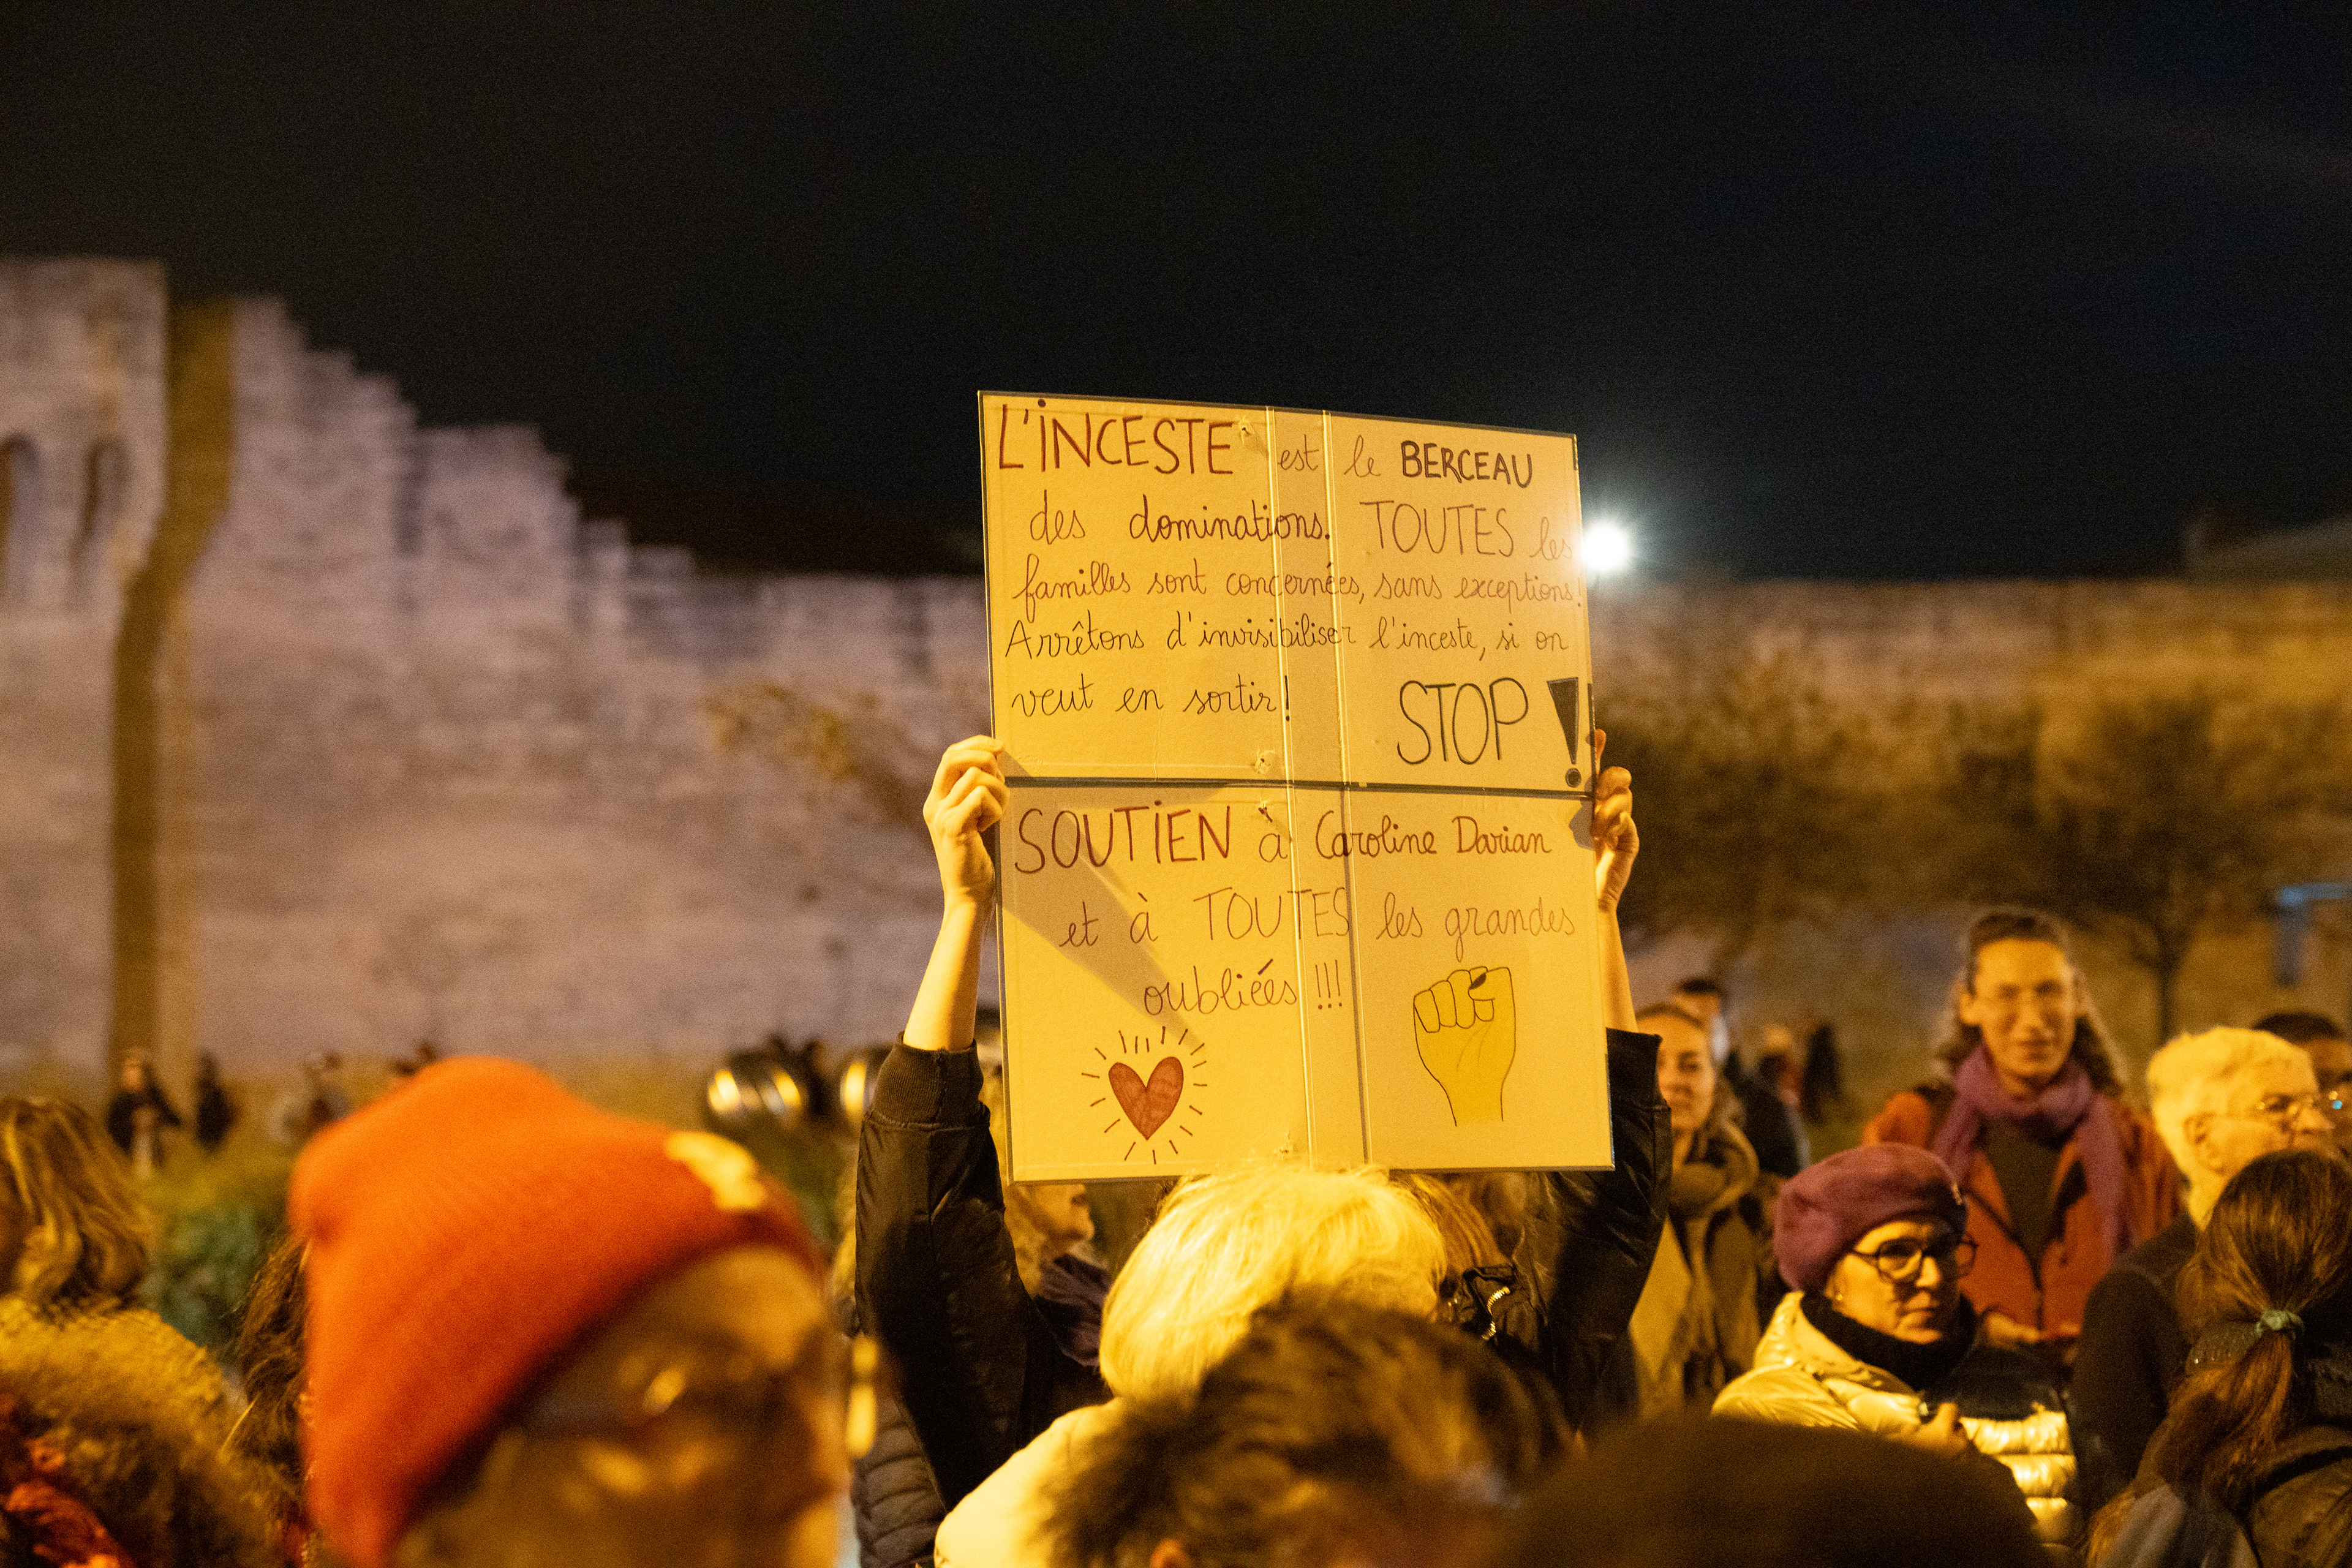 L'iNCESTE est le BERCEAU
des dominations. TOUTES les
familles sont concernées, sans exceptions!
Arrêtons d'invisibiliser l'inceste, si on
veut en sortir! STOP!
SOUTiEN à Caroline Darian
et à TOUTES les grandes
oubliées !!!